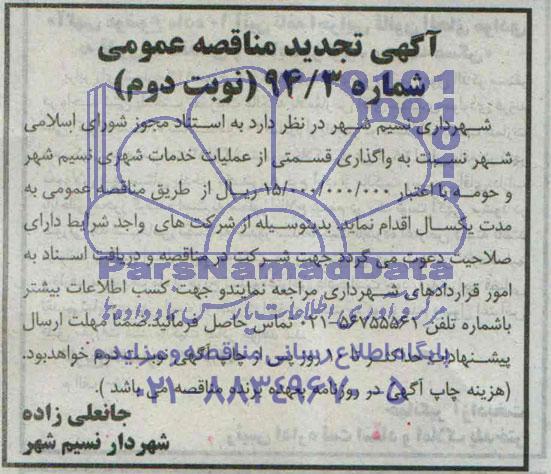 آگهی تجدید مناقصه عمومی
شماره ۹۴/۳ (نوبت دوم)
شهرداری نسیم شهر در نظر دارد به استناد مجوز شورای اسلامی
شهر نسبت به واگذاری قسمتی از عملیات خدمات شهری نسیم شهر
و حومه با اعتبار ۱۵/۰۰۰/۰۰۰/۰۰۰ ریال از طریق مناقصه عمومی به
مدت یکسال اقدام نماید. بدینوسیله از شرکت های واجد شرایط دارای
صلاحیت دعوت می گردد جهت شرکت در مناقصه و دریافت اسناد به
امور قراردادهای شهرداری مراجعه نمایندو جهت کسب اطلاعات بیشتر
باشماره تلفن ۵۶۷۵۵۵۶۲-۰۲۱ تماس حاصل فرمائید.ضمنا مهلت ارسال
پیشنهادات حداکثر تا ۱۰ روز پس از چاپ آگهی نوبت دوم خواهدبود.
(هزینه چاپ آگهی در روزنامه بعهده برنده مناقصه می باشد.)
جانعلی زاده
شهردار نسیم شهر
ParsNamadData
مرکز فرآوری اطلاعات پارس نماد داده ها
پایگاه اطلاع رسانی مناقصه و مزایده
۰۲۱-۸۸۳۴۹۶۷۰-۵